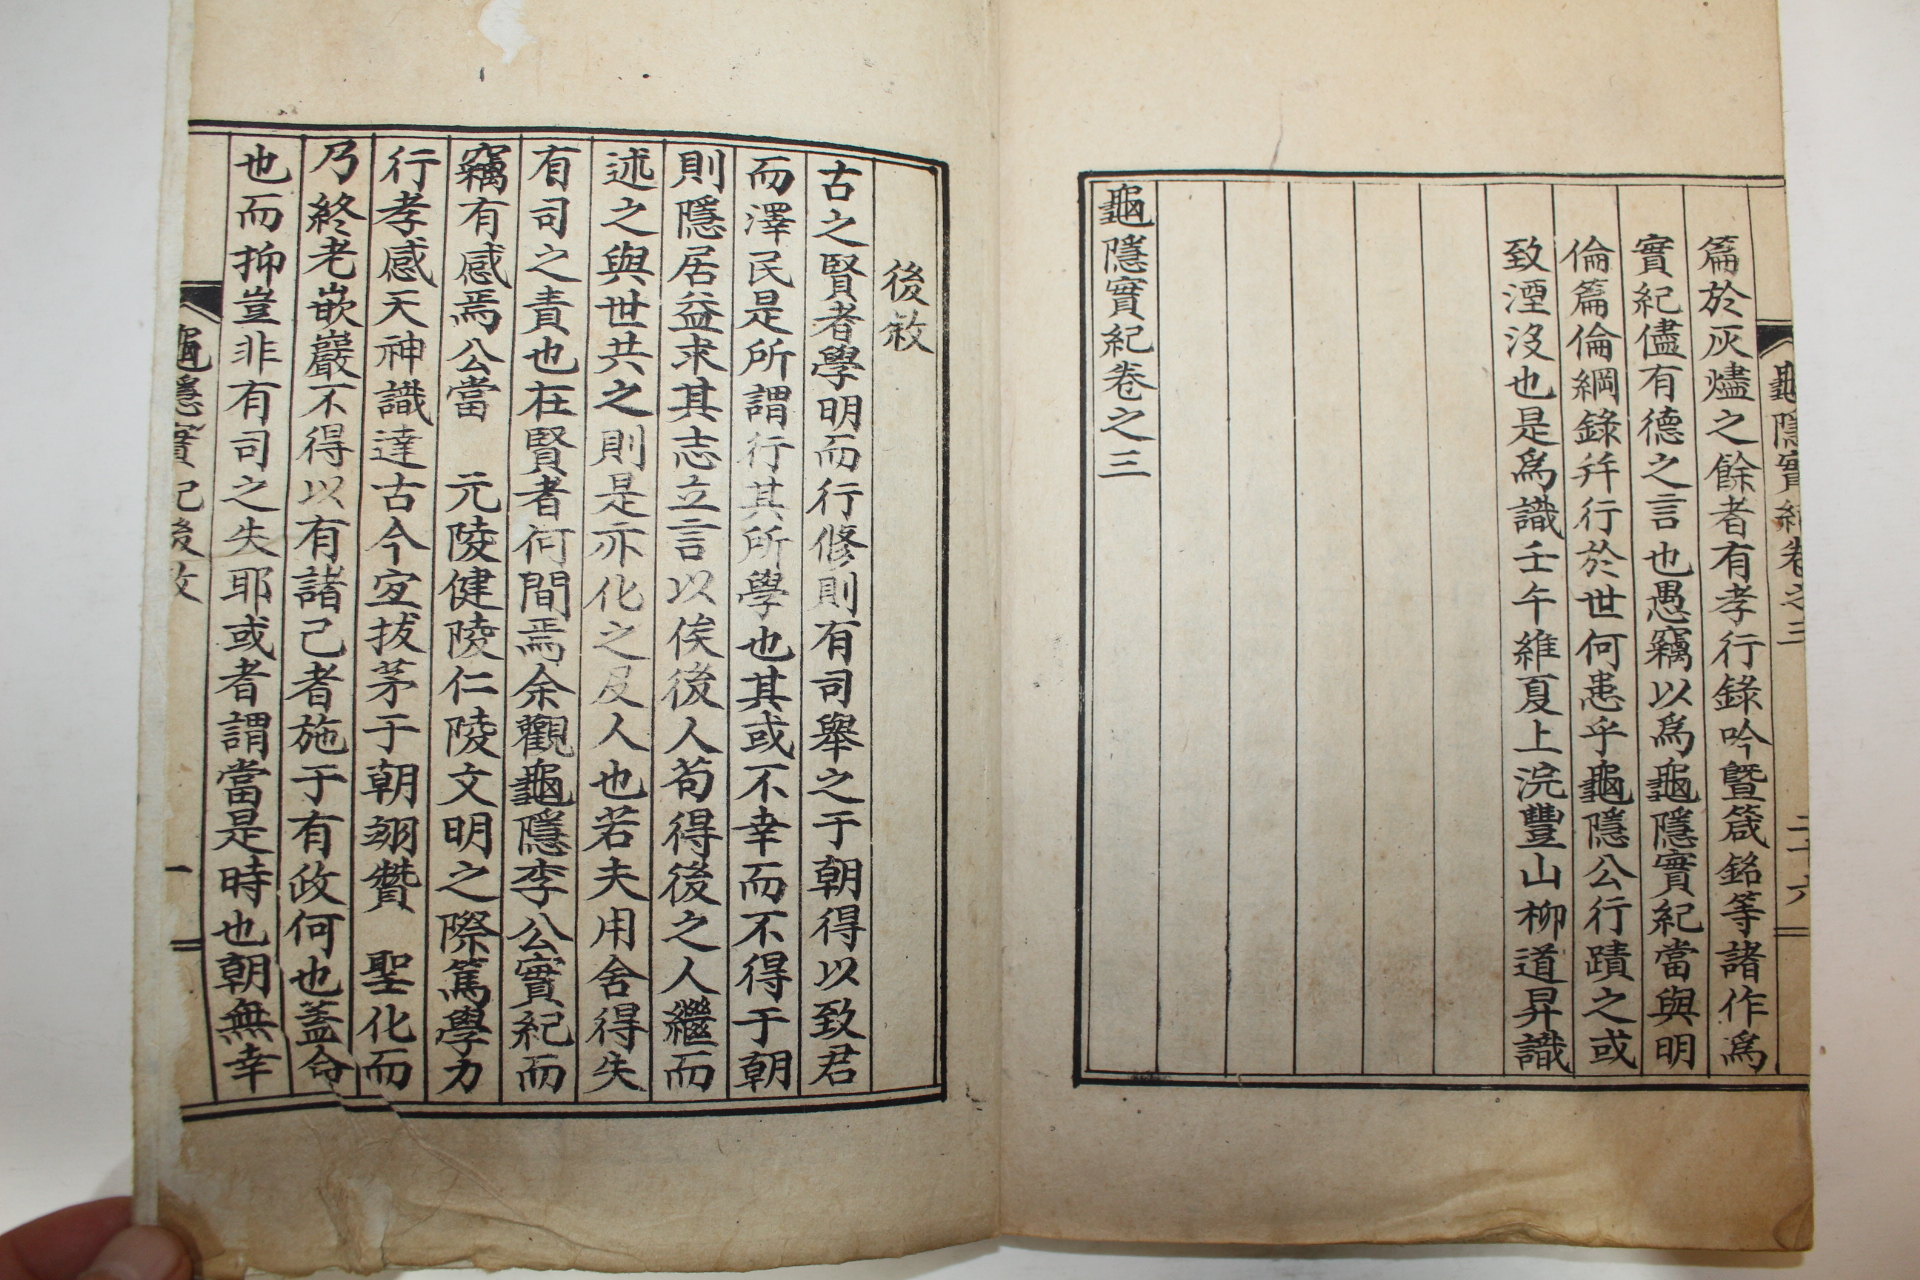 龜隱實紀卷之三
二十六
篇於灰燼之餘者有孝行錄吟曁箴銘等諸作爲
實紀儘有德之言也愚竊以爲龜隱實紀當與明
倫篇倫綱錄幷行於世何患乎龜隱公行蹟之或
致湮沒也是爲識壬午維夏上浣豐山柳道昇識
龜隱實紀卷之三
後敘
古之賢者學明而行修則有司舉之于朝得以致君
而澤民是所謂行其所學也其或不幸而不得于朝
則隱居益求其志立言以俟後人苟得後之人繼而
述之與世共之則是亦化之及人也若夫用舍得失
有司之責也在賢者何間焉余觀龜隱李公實紀而
竊有感焉公當 元陵健陵仁陵文明之際篤學力
行孝感天神識達古今宜拔茅于朝翊贊 聖化而
乃終老嵌巖不得以有諸己者施于有政何也蓋命
也而抑豈非有司之失耶或者謂當是時也朝無幸
龜隱實紀後敘
一